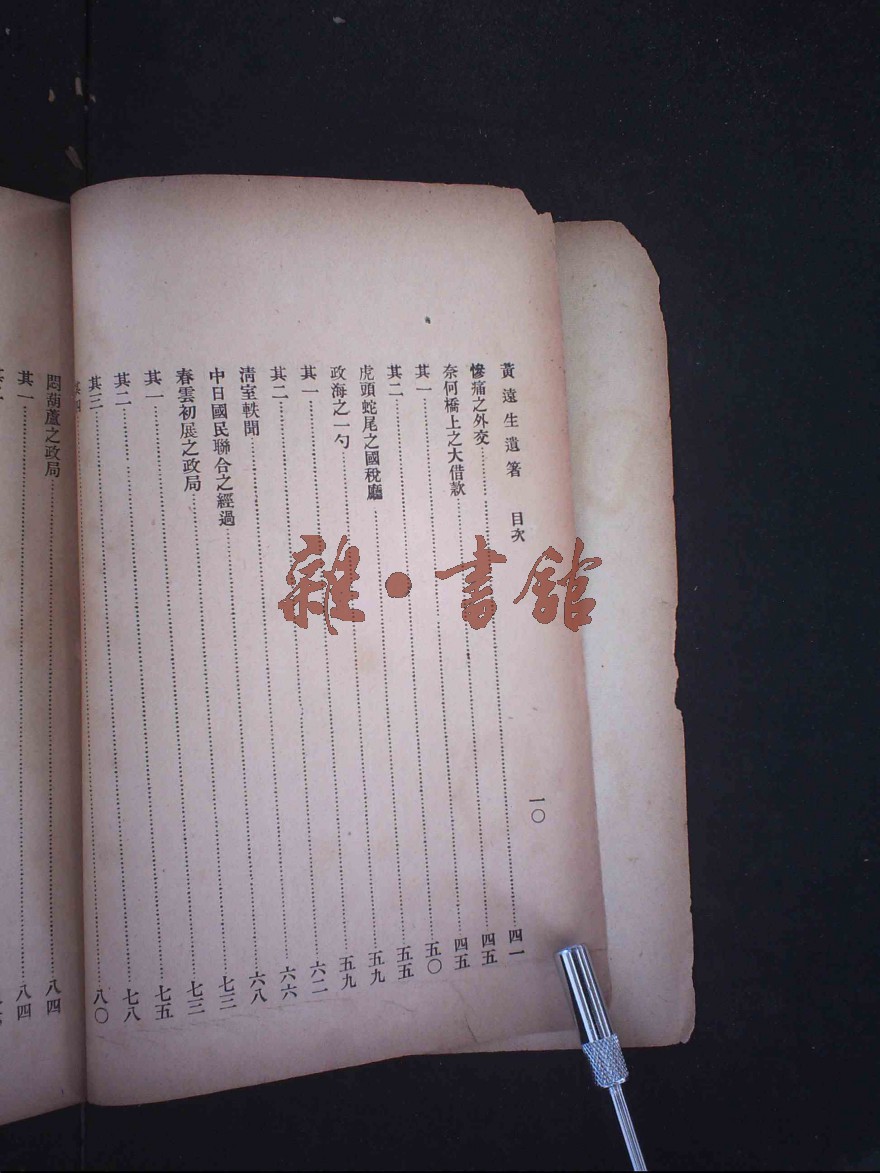 黃遠生遺箸 目次 一〇
慘痛之外交……四一
奈何橋上之大借款……四五
其一……四五
其二……五〇
虎頭蛇尾之國稅廳……五五
政海之一勺……五九
其一……五九
其二……六二
清室軼聞……六六
中日國民聯合之經過……六八
春雲初展之政局……七三
其一……七三
其二……七五
其三……七八
其四……八〇
悶葫蘆之政局……八四
其一……八四
雜·書館